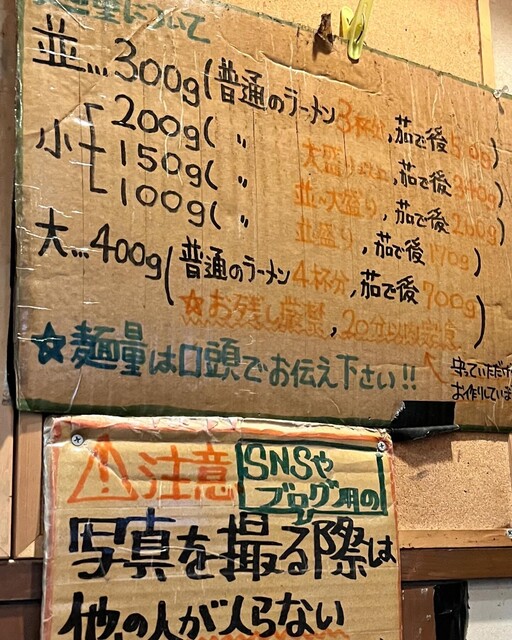 麺量について
並…300g(普通のラーメン3杯分,茹で後510g)
小 200g( 〃 大盛り以上,茹で後340g)
150g( 〃 並~大盛り,茹で後260g)
100g( 〃 並盛り,茹で後170g)
大…400g(普通のラーメン4杯分,茹で後700g
☆お残し厳禁,20分以内完食)
守っていただけ
お作りしていま
☆麺量は口頭でお伝え下さい!!
⚠注意 SNSや
ブログ用の
写真を撮る際は
他の人が入らない